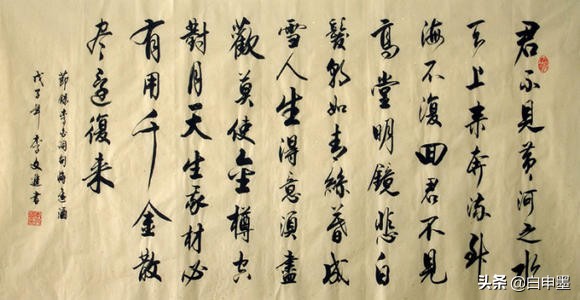 君不見黄河之水
天上来奔流到
海不復回君不見
高堂明鏡悲白
髮朝如青絲暮成
雪人生得意須盡
歡莫使金樽空
對月天生我材必
有用千金散
尽還復来
節録李白詩句將進酒
戊子年 李 書
头条 @白申墨